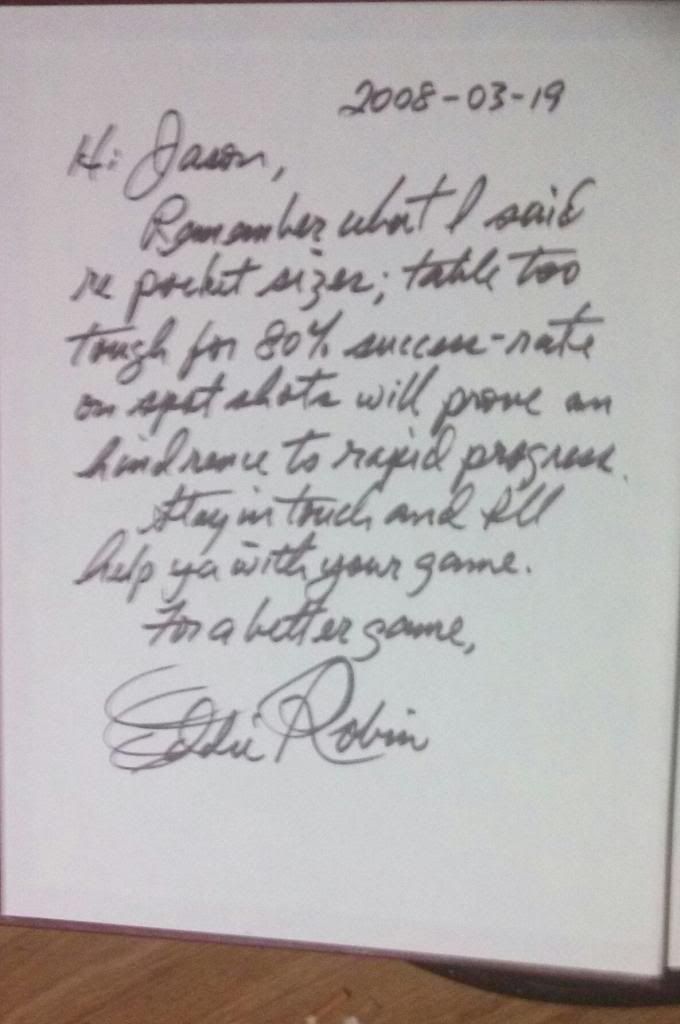 2008-03-19
Hi Jason,
Remember what I said
re pocket sizes; table too
tough for 80% success-rate
on spot shots will prove an
hindrence to rapid progress.
Stay in touch and I'll
help ya with your game.
For a better game,
Eddie Robin